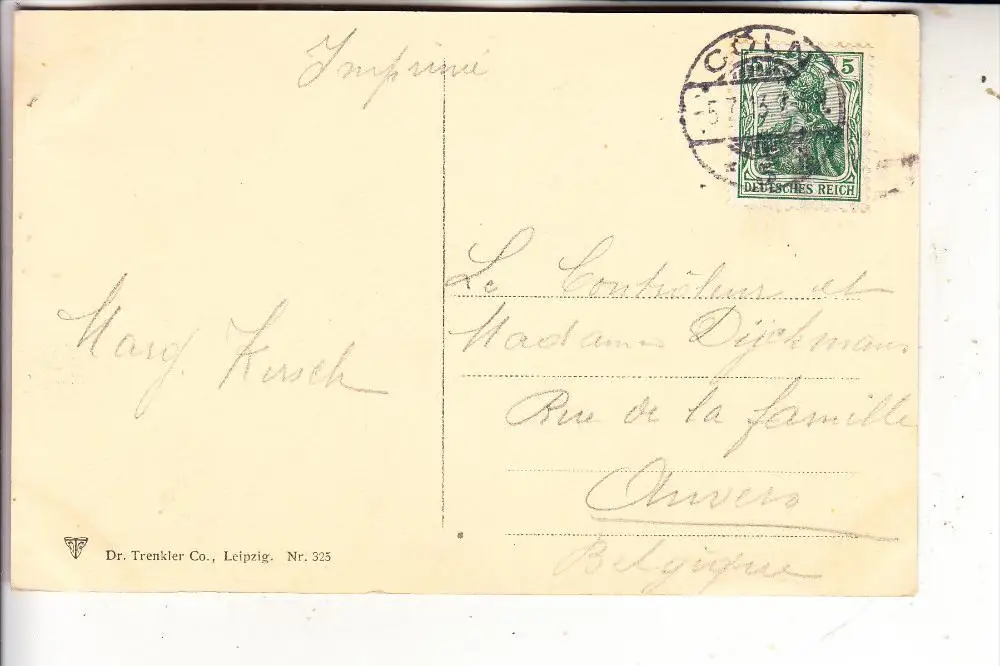 Imprimé
CÖLN
5
5.7.13
DEUTSCHES REICH
Marg. Kirsch
Le Contrôleur et
Madame Dijckmans
Rue de la famille
Anvers
Belgique
Dr. Trenkler Co., Leipzig. Nr. 325